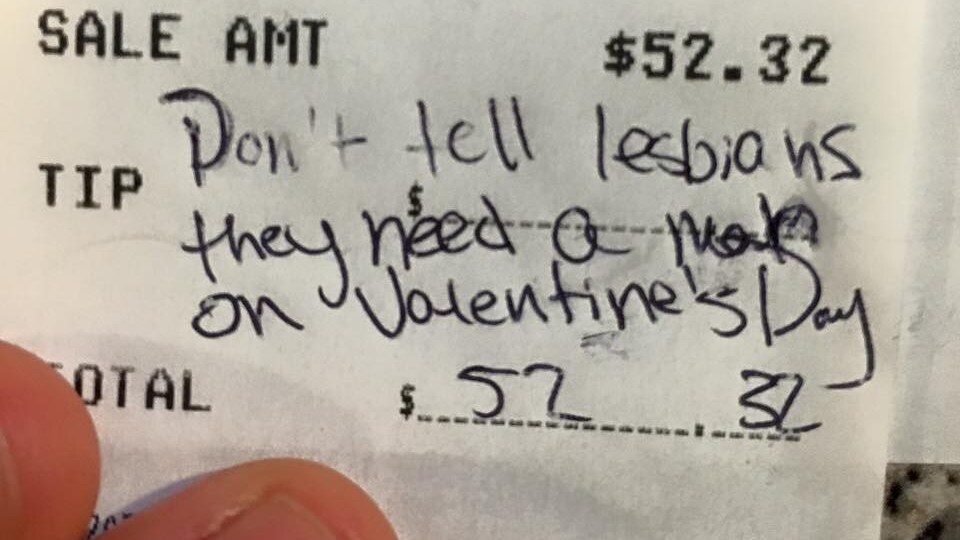 SALE AMT $52.32
Don't tell lesbians
TIP $
they need a
on Valentine's Day
TOTAL $ 52 . 32